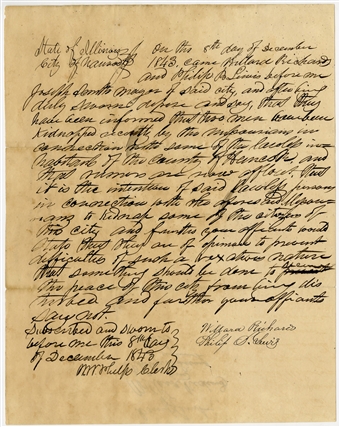 State of Illinois } On the 8th day of December
City of Nauvoo } 1843. came Willard Richards
and Philip B. Lewis before me
Joseph Smith mayor of said city, and after being
duly sworn, depose and say, that they
have been informed that two men have been
Kidnapped recently by the Missourians in
connection with some of the lawless in=
habitants of the County of Hancock, and
that rumors are now afloat, that
it is the intention of said lawless persons
in connection with the aforesaid Missour-
ians to kidnap some of the citizens of
this city, and further your affiants would
say that they are of opinion to prevent
difficulties of such a vexatious nature
that something should be done to
the peace of this city from being dis
turbed, and further your affiants
say not.
Subscribed and sworn to }
before me this 8th day }
of December 1843 }
W. W. Phelps Clerk
Willard Richards
Philip B. Lewis